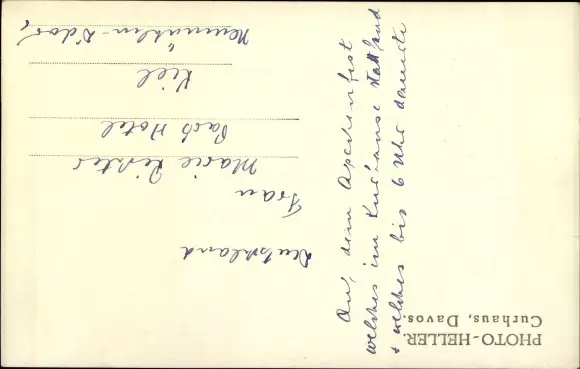 Auf dem Apachenfest
welches im Kurhause stattfand
+ welches bis 6 Uhr dauerte
Deutschland
Frau
Marie Richter
Park Hotel
Kiel
Neumühlen-Ddorf
PHOTO-HELLER.
Curhaus, Davos.